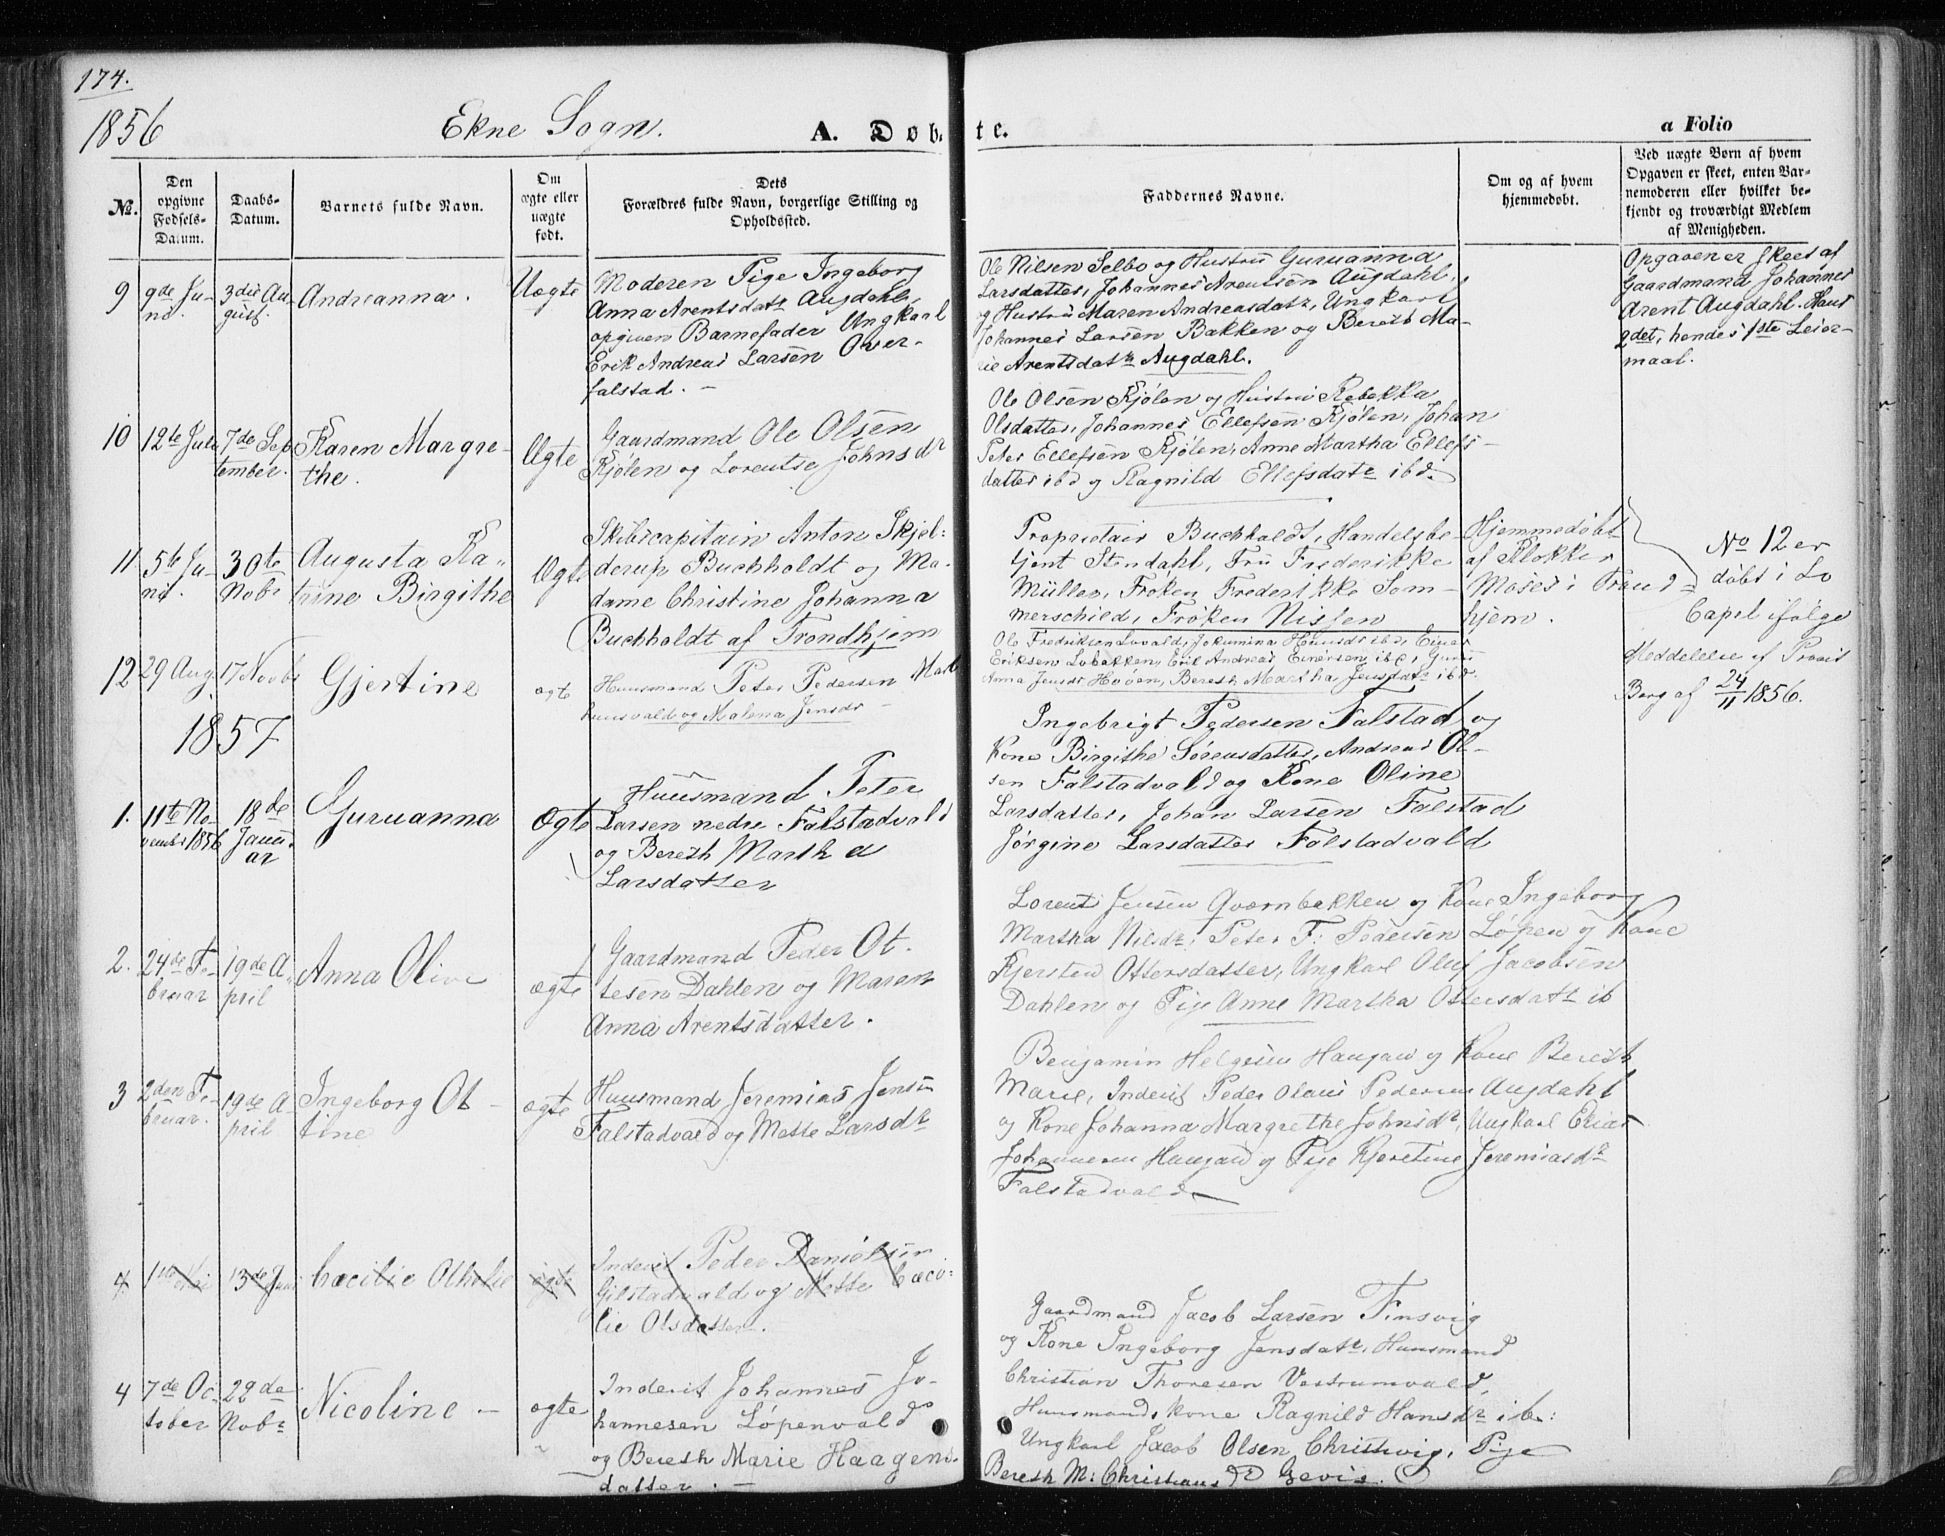 174.
1856
Ekne Sogn.
A. Døb
te.
a Folio
No.
Den opgivne Fødsels-Datum.
Daabs-Datum.
Barnets fulde Navn.
Om ægte eller uægte født.
Dets Forældres fulde Navn, borgerlige Stilling og Opholdssted.
Faddernes Navne.
Om og af hvem hjemmedøbt.
Ved uægte Børn af hvem Opgaven er skeet, enten Barnemoderen eller hvilket bekjendt og troværdigt Medlem af Menigheden.
9
9de Ju-
ni.
3die Au
gust.
Andreanna.
Uægte
Moderen Pige Ingeborg
Anna Arentsdatr Augdahl,
opgiven Barnefader Ungkarl
Erik Andreas Larsen Over-
falstad. -
Ole Nilsen Selbo og Hustru Guruanna
Larsdatter, Johannes Arentsen Augdahl,
og Hustru Maren Andreasdatr, Ungkarl
Johannes Larsen Bakken og Bereth Ma-
rie Arentsdatr Augdahl.
Opgaven er skeet af
Gaardmand Johannes
Arent Augdahl. Hans
2det, hendes 1ste Leier-
maal.
10
12te Juli
7de Sep
tember.
Karen Margre-
the.
Ægte
Gaardmand Ole Olsen
Kjølen og Lorentse Johnsdr
Ole Olsen Kjølen og Hustru Rebekka
Olsdatter, Johannes Ellefsen Kjølen, Johan
Peter Ellefsen Kjølen, Anne Martha Ellefs-
datter ibd og Ragnild Ellefsdatr ibd.
11
5te Ju-
ni.
30te
Nobr
Augusta Ka-
trine Birgithe
Ægte
Skibscapitain Anton Skjel-
derup Buchholdt og Ma-
dame Christine Johanna
Buchholdt af Trondhjem
Proprietair Buchholdt, Handelsbe-
tjent Stendahl, Fru Frederikke
Müller, Frøken Frederikke Som-
merschild, Frøken Nissen
Hjemmedøbt
af Klokker
Moses i Trond-
hjem.
No 12 er
døbt i Lo
Capel ifølge
Meddelelse af Provst
Berg af 24/11 1856.
12
29 Aug.
17 Novbr
Gjertine
ægte
Huusmand Peter Pedersen
huusvald og Malena Jensdr
Ole Fredriksen Lovald, Jokumina Hansdr ibd, Einer
Eriksen Lobakken, Erik Andreas Einersen ibd, Guru
Anna Jensdr Hoven, Bereth Martha Jensdatr ibd.
1857
1.
11te No-
vember 1856
18de
Janu-
ar
Guruanna
Ægte
Huusmand Peter
Larsen nedre Falstadvald
og Bereth Martha
Larsdatter
Ingebrigt Pedersen Falstad og
Kone Birgithe Sørensdatter, Andreas Ol-
sen Falstadvald og Kone Oline
Larsdatter, Johan Larsen Falstad
Jørgine Larsdatter Falstadvald
2.
24de Fe-
bruar
19de A-
pril
Anna Olive
ægte
Gaardmand Peder Ot-
tesen Dahlen og Maren
Anna Arentsdatter.
Lorents Jensen Qvernbakken og Kone Ingeborg
Martha Nilsdr, Peter F: Pedersen Løpen og Kone
Kjersten Ottersdatter, Ungkarl Oluf Jacobsen
Dahlen og Pige Anne Martha Ottersdatr ib
3
2den Fe-
bruar.
19de A-
pril
Ingeborg Ot-
tine
ægte
Huusmand Jeremias Jensen
Falstadvald og Mette Larsdr
Benjamin Helgesen Haugan og Kone Bereth
Marie, Inderst Peder Olaus Pedersen Augdahl
og Kone Johanna Margrethe Johnsdr, Ungkarl Elias
Johannesen Haugan og Pige Kjerstine Jeremiasdr
Falstadvald
4
1ste Mai
13de Juni
Cæcilie Othelie
ægte
Inderst Peder Danielsen
Gilstadvald og Mette Cæci-
lie Olsdatter.
4
7de Oc-
tober
22de
Nobr
Nicoline -
ægte
Inderst Johannes Jo-
hannesen Løpenvald
og Bereth Marie Haagens-
datter. -
Gaardmand Jacob Larsen Finsvig
og Kone Ingeborg Jensdatr, Huusmand
Christian Thoresen Vestrumvald,
Huusmandskone Ragnild Hansdr ib:
Ungkarl Jacob Olsen Christvig, Pige
Bereth M: Christiansd Gevig.